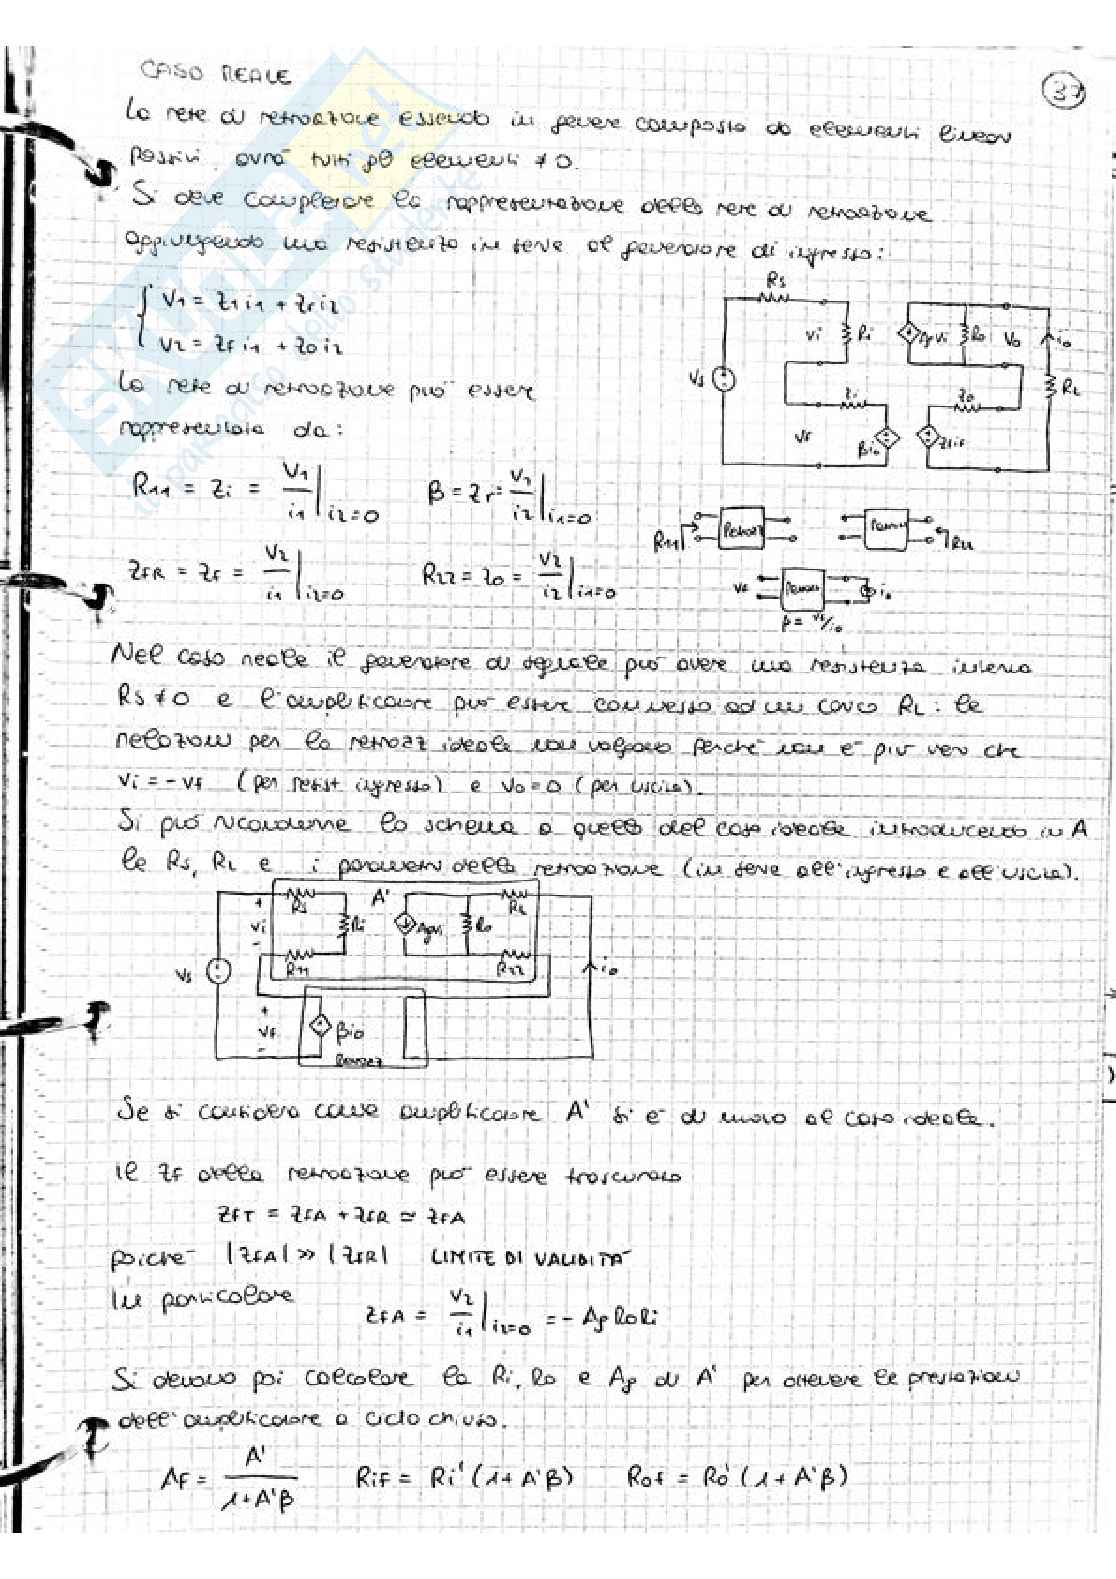 CASO REALE
37
La rete di retroazione essendo in genere composta da elementi lineari
passivi, avrà tutti gli elementi ≠ 0.
Si deve completare la rappresentazione della rete di retroazione
aggiungendo una resistenza in serie al generatore di ingresso:
V1 = Z1 i1 + Zr i2
V2 = ZF i1 + Z0 i2
La rete di retroazione può essere
rappresentata da:
Rs
Vi Ri Agvi Ro Vo io
Vs Zi Zo RL
VF βio ZFiF
R11 = Zi = V1/i1 | i2=0 β = Zr = V1/i2 | i1=0
ZFR = ZF = V2/i1 | i2=0 R22 = Zo = V2/i2 | i1=0
R11 Retroaz R22
VF io
β = VF/io
Nel caso reale il generatore di segnale può avere una resistenza interna
Rs ≠ 0 e l'amplificatore può essere connesso ad un carico RL: le
relazioni per la retroaz ideale non valgono perché non è più vero che
Vi = - VF (per resist ingresso) e Vo = 0 (per uscita).
Si può ricondurre lo schema a quello del caso ideale introducendo in A
le Rs, RL e i parametri della retroazione (in serie all'ingresso e all'uscita).
+ Rs A' RL
Vi Ri Agvi Ro
- R11 R22
Vs io
+
VF βio
- Retroaz
Se si considera come amplificatore A' si è di nuovo al caso ideale.
Il ZF della retroazione può essere trascurato
ZFT = ZFA + ZFR ≃ ZFA
poiché |ZFA| >> |ZFR| LIMITE DI VALIDITÀ
In particolare ZFA = V2/i1 | i2=0 = - Ag Ro Ri
Si devono poi calcolare la Ri, Ro e Ag di A' per ottenere le prestazioni
dell'amplificatore a ciclo chiuso.
AF = A'/(1+A'β) RiF = Ri' (1+A'β) RoF = Ro' (1+A'β)